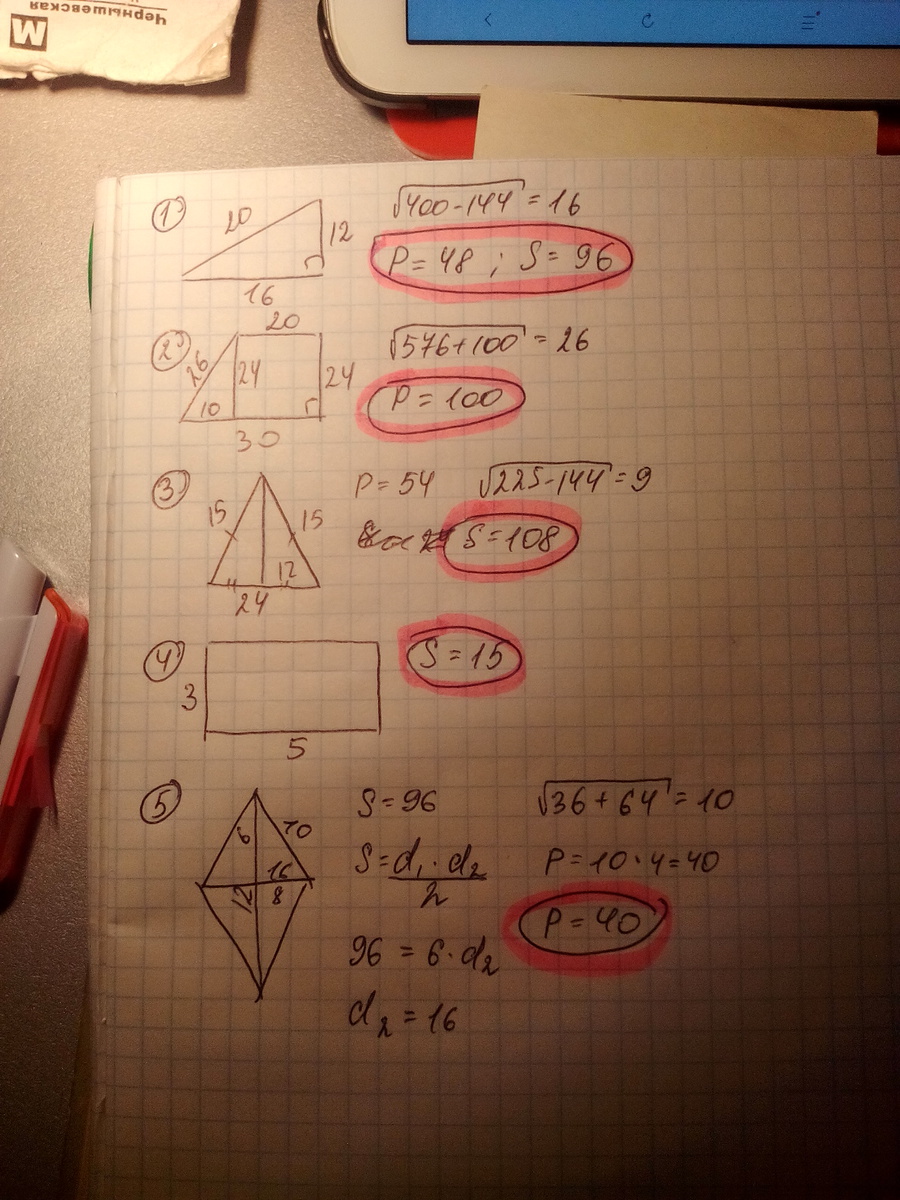 Чернышевская
М
1)
20
12
16
√400-144 = 16
P = 48 ; S = 96
2)
20
26
24
24
10
30
√576+100 = 26
P = 100
3)
15
15
12
24
P = 54 √225-144 = 9
S = 108
4)
3
5
S = 15
5)
6
10
16
12
8
S = 96 √36 + 64 = 10
S = d₁ · d₂ / 2 P = 10 · 4 = 40
P = 40
96 = 6 · d₂
d₂ = 16